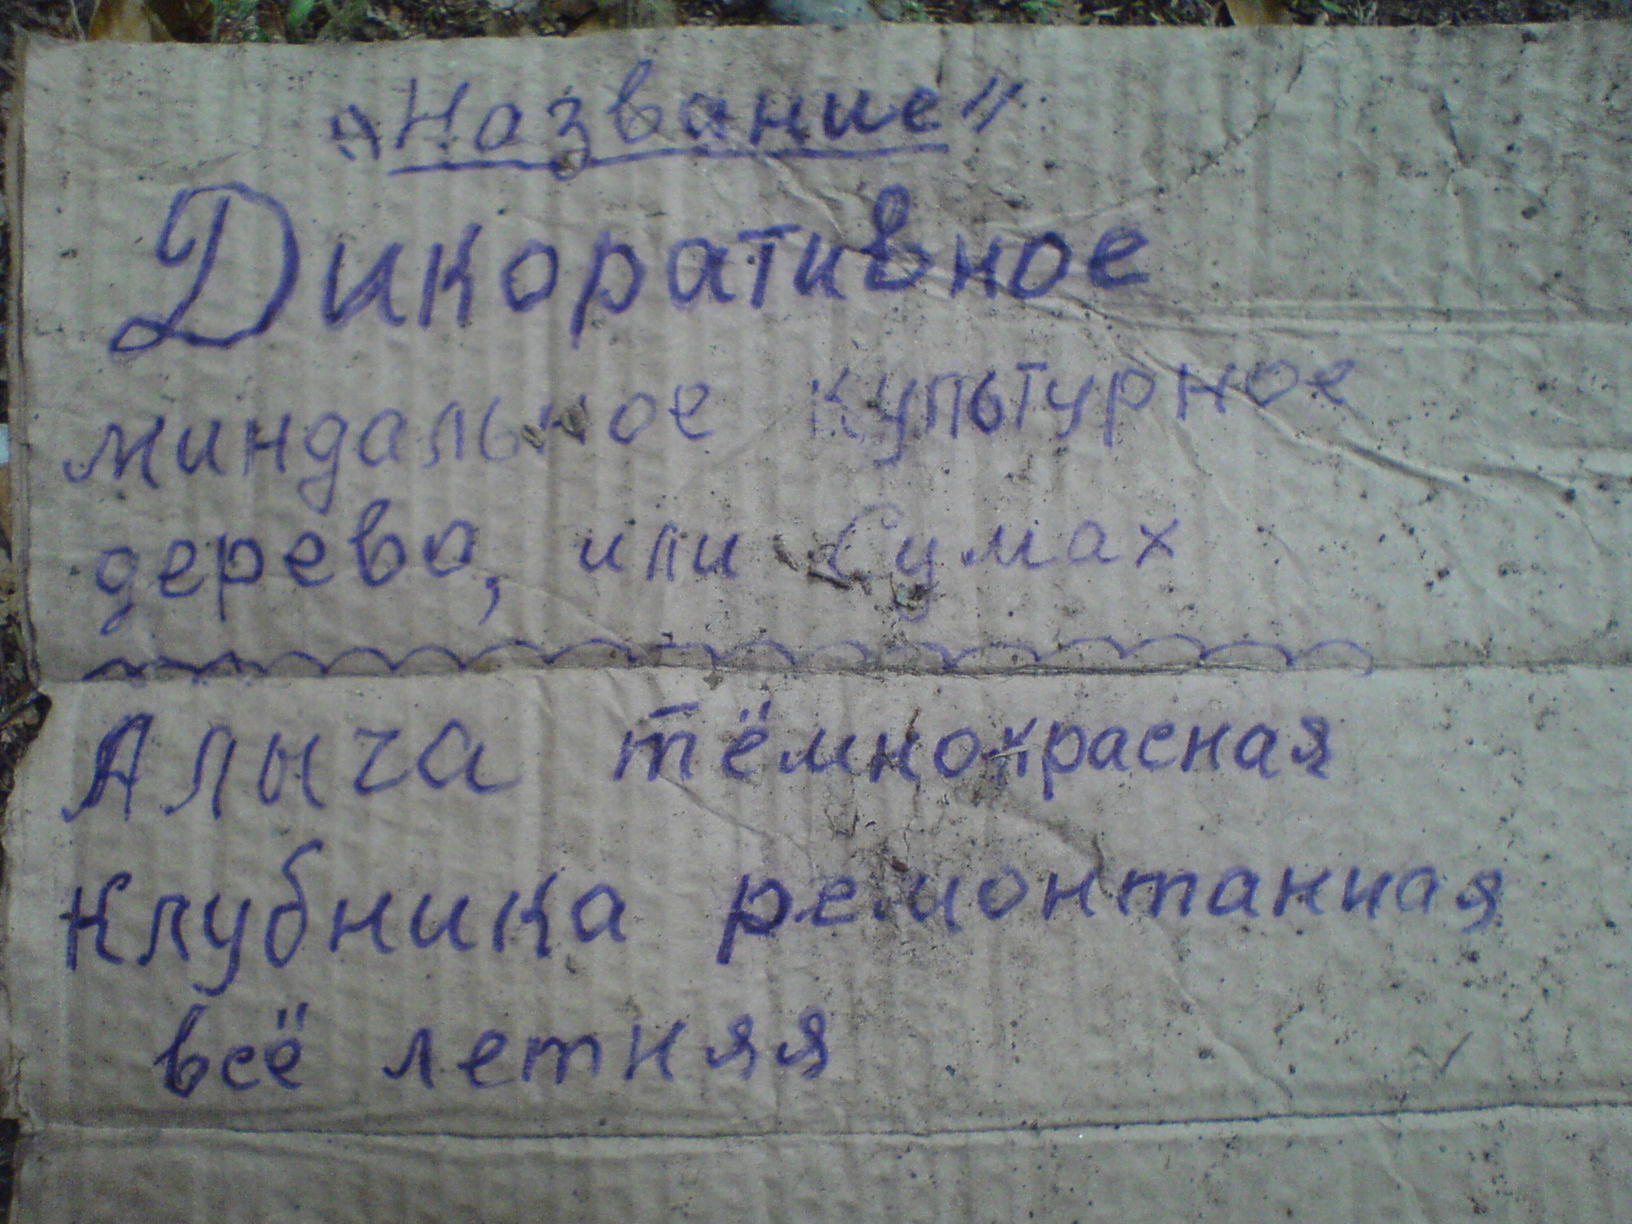 „Название"
Дикоративное
миндальное культурное
дерево, или Сумах
Алыча тёмнокрасная
Клубника ремонтанная
всё летняя